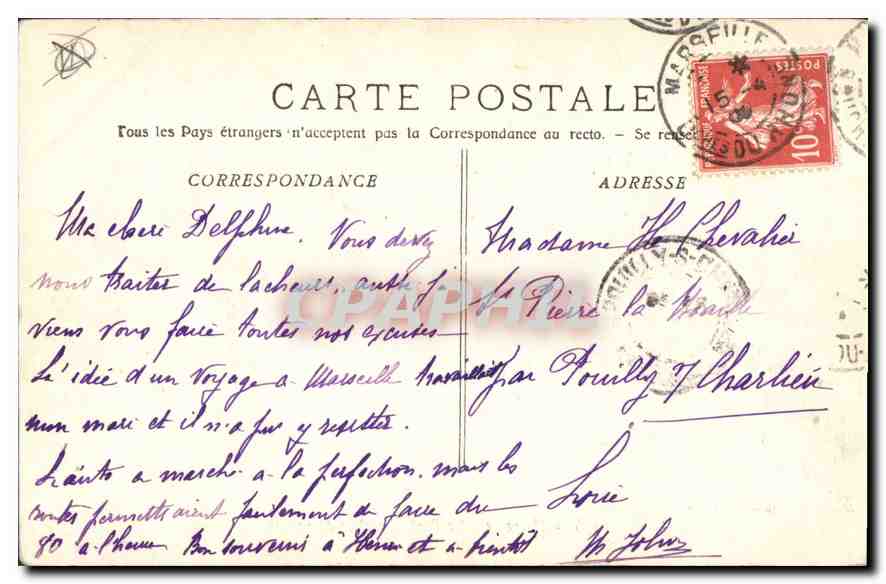 CARTE POSTALE
Tous les Pays étrangers n'acceptent pas la Correspondance au recto. - Se rensei
CORRESPONDANCE
Ma chere Delphine. Vous devez
nous traiter de lacheurs, aussi je
viens vous faire toutes nos excuses
L'idée d'un voyage a Marseille travaillait
mon mari et il n'a pu y resister.
L'auto a marché a la perfection. mais les
routes permettaient facilement de faire du
80 a l'heure Bon souvenir à Henri et a bientôt
ADRESSE
Madame He Chevalier
St Pierre la Noaille
par Pouilly s/ Charlieu
Loire
MARSEILLE
15 -4
09
RHONE
POSTES
FRANÇAISE
10
POUILLY-S-
CPAPHIL